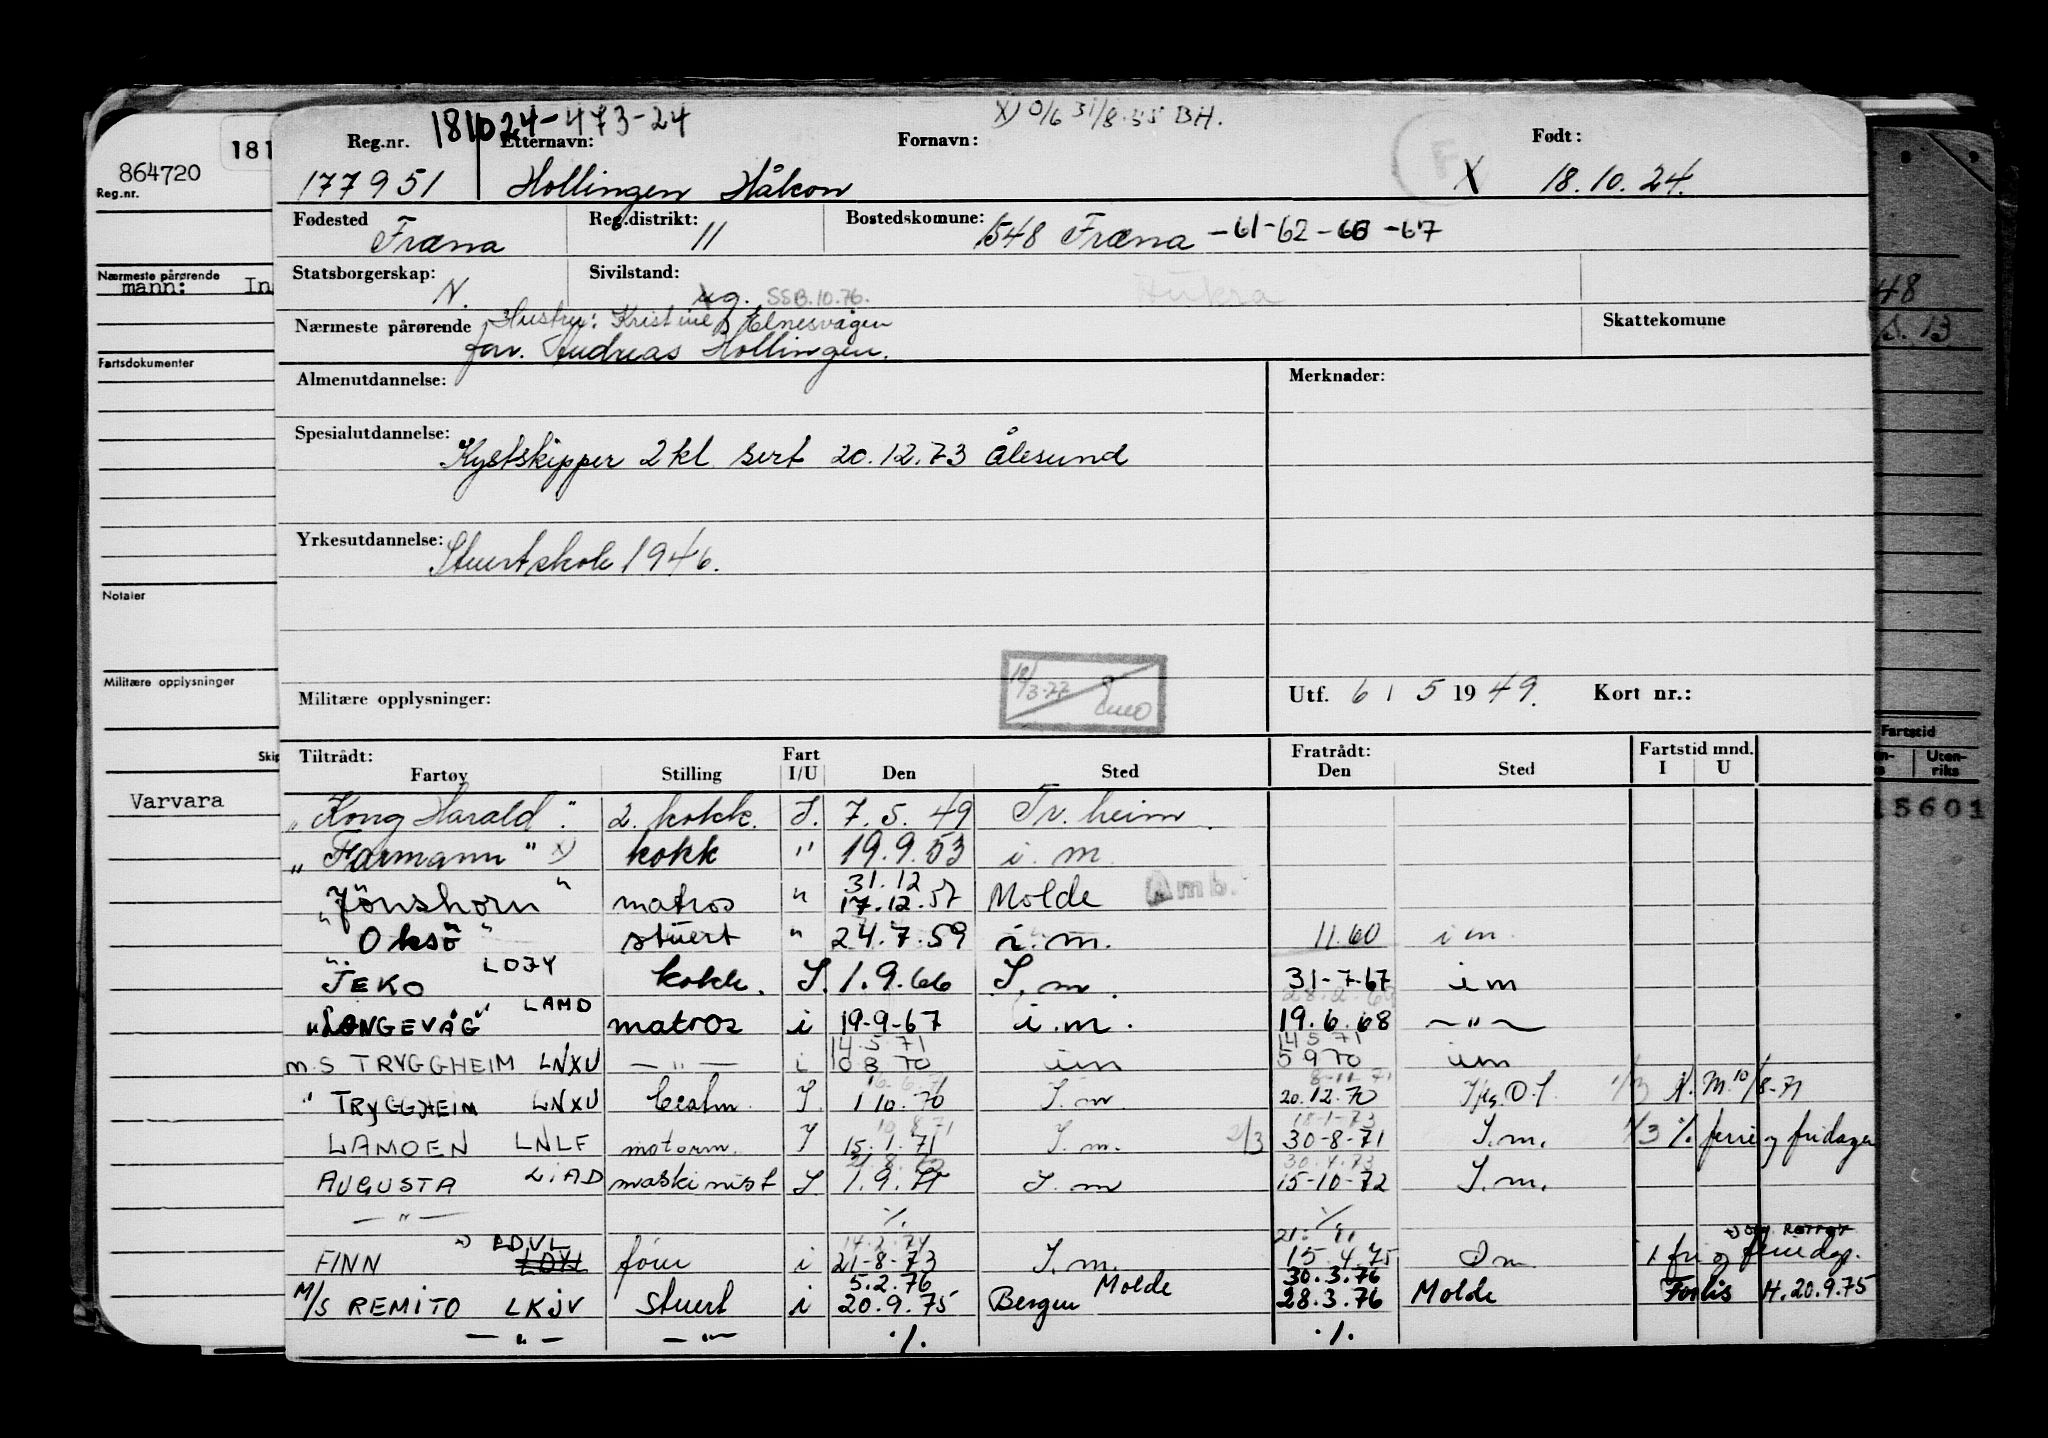 181024-473-24
X) 0/6 31/8.55 BH.
Reg.nr. Etternavn: Fornavn: Født:
177951 Hollingen Håkon X 18.10.24.
F
Fødested Fræna Reg.distrikt: 11 Bostedskomune: 1548 Fræna -61-62-66-67
Statsborgerskap: N. Sivilstand: ug. SSB.10.76. Aukra
Hustru: Kristine Elnesvågen
Nærmeste pårørende far. Andreas Hollingen. Skattekomune
Almenutdannelse: Merknader:
Spesialutdannelse: Kystskipper 2 kl sert 20.12.73 Ålesund
Yrkesutdannelse: Stuertskole 1946.
Militære opplysninger: Utf. 6 / 5 1949. Kort nr.:
Tiltrådt: Fart Fratrådt: Fartstid mnd.
Fartøy Stilling I/U Den Sted Den Sted I U
"Kong Harald". 2. kokk. I. 7.5.49 Tr.heim.
"Farmann" x) kokk " 19.9.53 i.m.
31.12
"Jönshorn" matros " 17.12.57 Molde Amb.
"Oksö" stuert " 24.7.59 i.m. 11.60 i m.
"JEKO LDJY kokk. I. 1.9.66 I.m. 31-7-67 i m
"LANGEVÅG" LAMD matros i 19-9-67 i.m. 19.6.68 —"—
14.5.71 14 5 71
m.S TRYGGHEIM LNXU —"— i 10 8 70 i m 5 9 70 i m
" TRYGGHEIM LNXU I. 1 10.70 I.m 20.12.70 1/3 M. 10/8-71
19.8.71 18-1-73
LAMOEN LNLF motorm. I 15.1.71 I.m. 2/3 30-8-71 I.m. 1/3 %. ferie og fridager
30.4.73
AUGUSTA LiAD maskinist I. 1.9.71 I.m 15-10-72 I.m.
—"— %. %.
14.2.74
FINN LDVL i 21-8-73 I.m. 15.4.75 I m
5.2.76 Molde 30.3.76
M/S REMITO LKJV stuert i 20.9.75 Bergen 28.3.76 Molde H.20.9.75
—"— —"— %. %.
864720 181
Reg.nr.
Nærmeste pårørende
mann: In
Fartsdokumenter
Notater
Militære opplysninger
Skip
Varvara
48
S. 13
Fartstid
Uten-
riks
15601